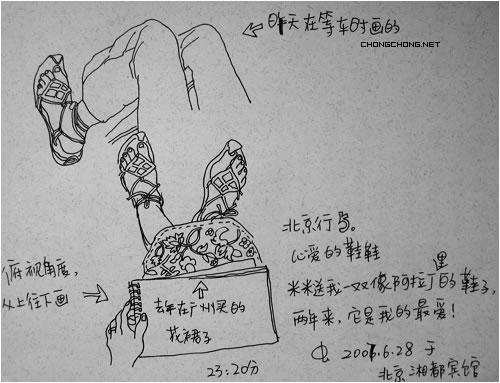 昨天在等车时画的
CHONGCHONG.NET
北京行
心爱的鞋鞋
米米送我一双像阿拉丁里的鞋子,
两年来,它是我的最爱!
虫 2007.6.28 于
北京湘都宾馆
俯视角度,
从上往下画
去年在广州买的
花裙子
23:20分